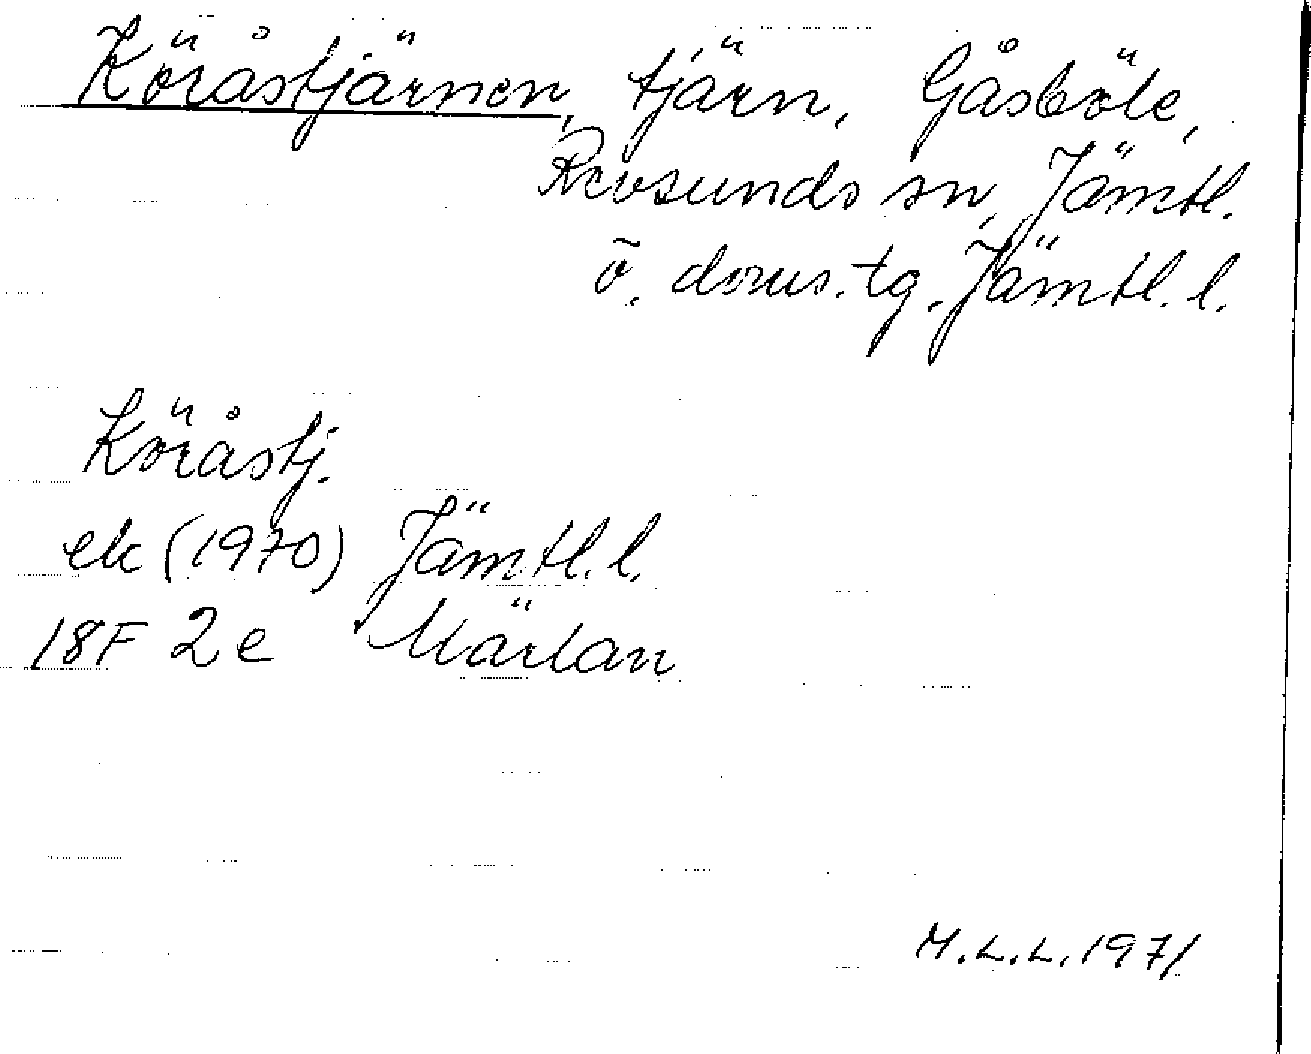 Köråstjärnen, tjärn, Gåsböle,
Revsunds sn, Jämtl.
ö. doms. tg. Jämtl. l.
Köråstj.
ek (1970) Jämtl. l.
18F 2e Märlan
M.L.L. 1971